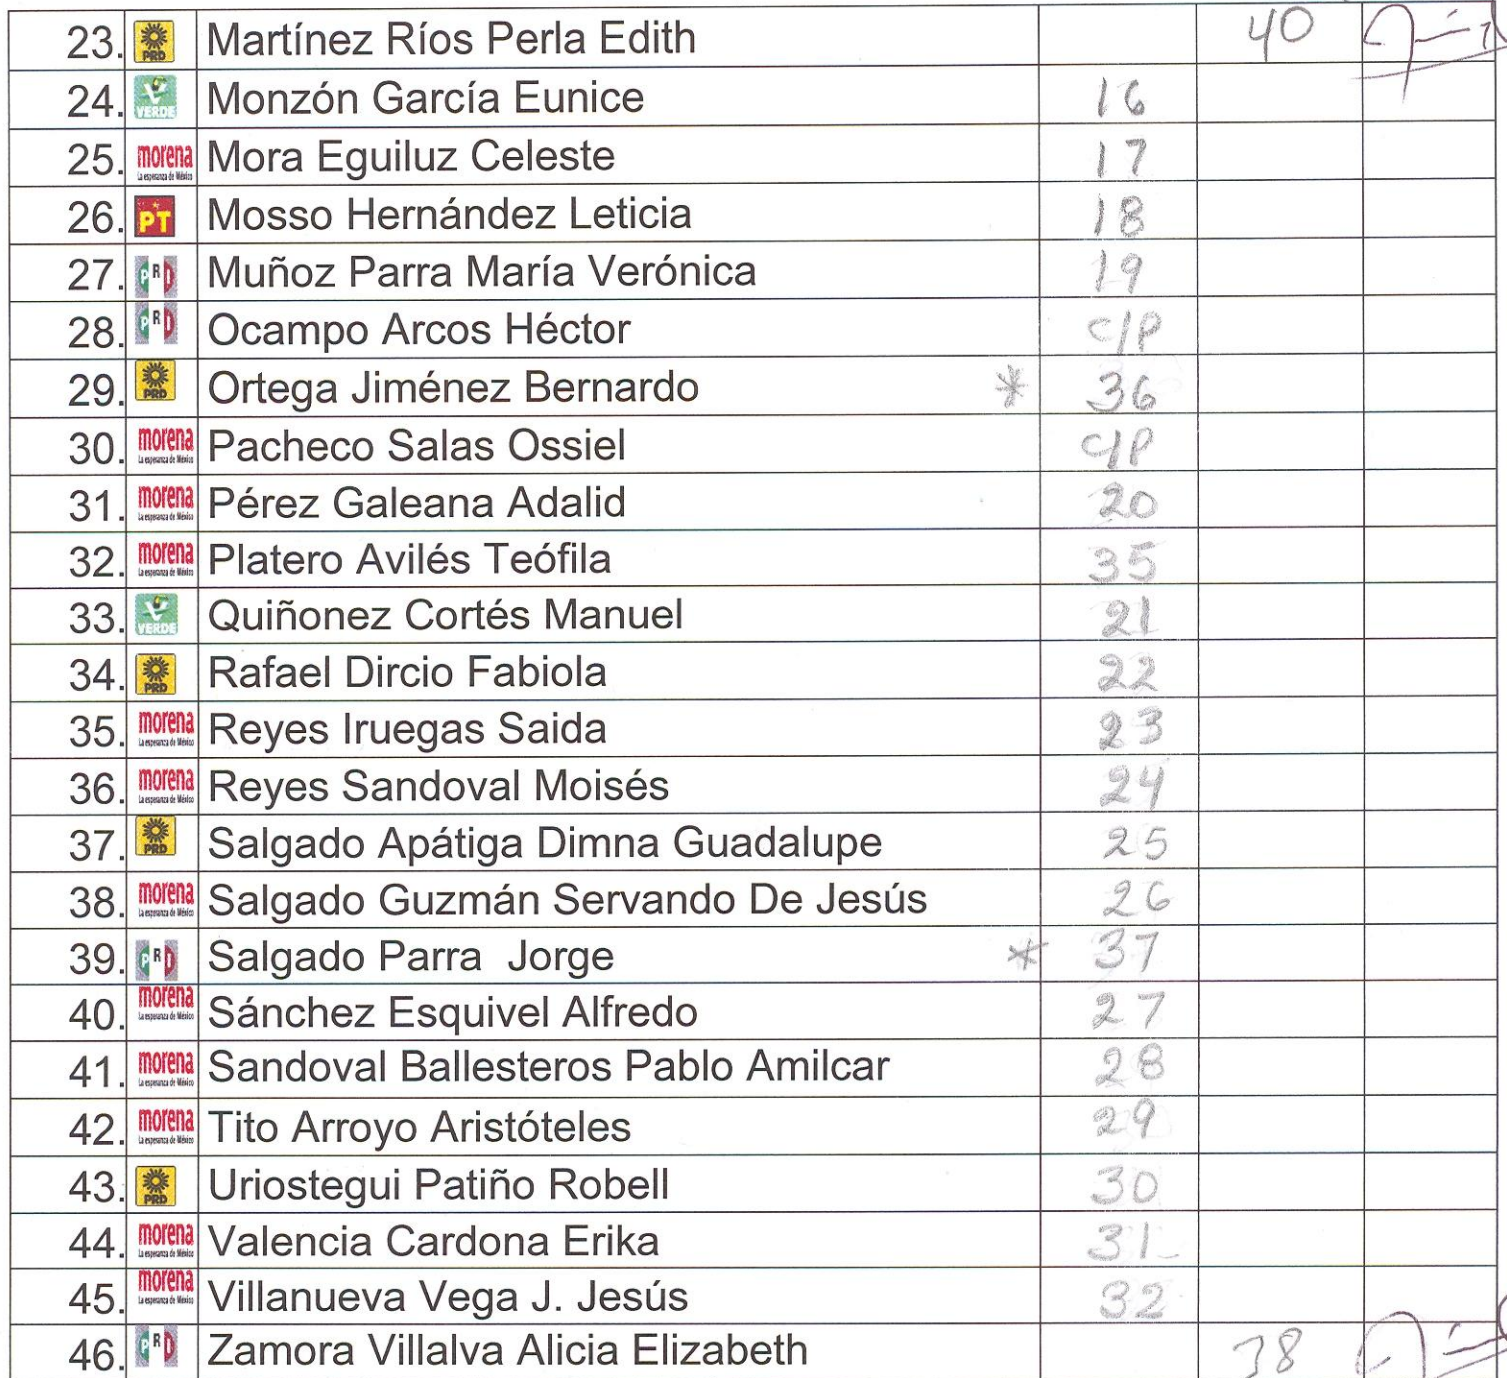 23. PRD Martínez Ríos Perla Edith 40
24. VERDE Monzón García Eunice 16
25. morena La esperanza de México Mora Eguiluz Celeste 17
26. PT Mosso Hernández Leticia 18
27. PRI Muñoz Parra María Verónica 19
28. PRI Ocampo Arcos Héctor C/P
29. PRD Ortega Jiménez Bernardo * 36
30. morena La esperanza de México Pacheco Salas Ossiel C/P
31. morena La esperanza de México Pérez Galeana Adalid 20
32. morena La esperanza de México Platero Avilés Teófila 35
33. VERDE Quiñonez Cortés Manuel 21
34. PRD Rafael Dircio Fabiola 22
35. morena La esperanza de México Reyes Iruegas Saida 23
36. morena La esperanza de México Reyes Sandoval Moisés 24
37. PRD Salgado Apátiga Dimna Guadalupe 25
38. morena La esperanza de México Salgado Guzmán Servando De Jesús 26
39. PRI Salgado Parra Jorge * 37
40. morena La esperanza de México Sánchez Esquivel Alfredo 27
41. morena La esperanza de México Sandoval Ballesteros Pablo Amilcar 28
42. morena La esperanza de México Tito Arroyo Aristóteles 29
43. PRD Uriostegui Patiño Robell 30
44. morena La esperanza de México Valencia Cardona Erika 31
45. morena La esperanza de México Villanueva Vega J. Jesús 32
46. PRI Zamora Villalva Alicia Elizabeth 38